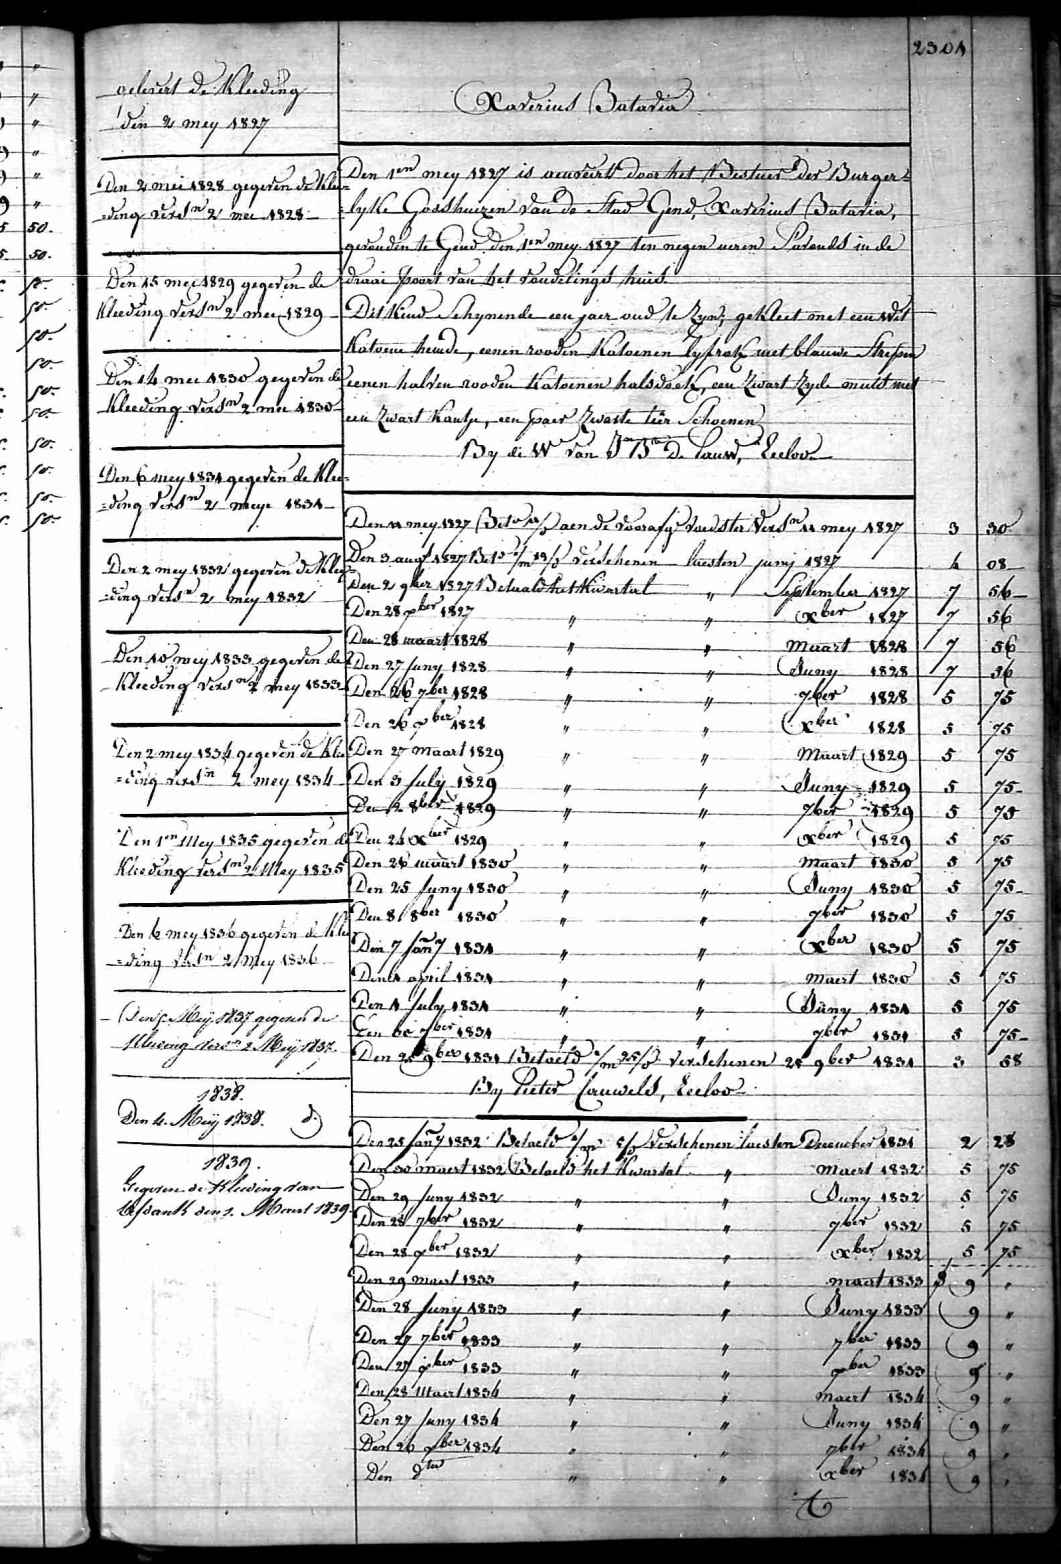 2304
Xaverius Batavia
gelevert de Kleeding
den 2 mey 1827
Den 2 mei 1828 gegeven de Klee=
=ding versn 2 mei 1828
Den 15 mei 1829 gegeven de
Kleeding versn 2 mei 1829
Den 14 mei 1830 gegeven de
Kleeding versn 2 mei 1830
Den 6 mey 1831 gegeven de Klee=
=ding versn 2 meye 1831
Den 2 mey 1832 gegeven de Klee=
=ding versn 2 mey 1832
Den 10 mey 1833 gegeven de
Kleeding versn 2 mey 1833
Den 2 mey 1834 gegeven de Klee
=ding versn 2 mey 1834
Den 1en Mey 1835 gegeven de
Kleeding versn 2 Mey 1835
Den 6 mey 1836 gegeven de Klee
=ding versn 2 Mey 1836
Den Meij 1837 gegeven de
Kleeding versn 2 Meij 1837
1838.
Den 4. Meij 1838. d.
1839.
Gegeven de Kleeding van
den 1. Maart 1839
Den 1en mey 1827 is door het Bestuer der Burger=
=lyke Godshuizen van de Stad Gend, Xaverius Batavia,
gevonden te Gend den 1en mey 1827 ten negen ueren s'avonds in de
draai poort van het vondelings huis.
Dit Kind Schynende een jaer oud te zyn, gekleet met een wit
Katoene hemde, eenen rooden Katoenen lyfrok met blauwe Strepen
eenen halven rooden Katoenen halsdoek, een zwart zyde muts met
een zwart kantje, een paer zwarte leer Schoenen
By de We van J Bte De Pauw, Eecloo
Den 11 mey 1827 aen de voorafge voedster versn 11 mey 1827 3 30
Den 3 augt 1827 verschenen laesten juny 1827 4 08
Den 2 9ber 1827 Betaald het Kwartal " September 1827 7 56
Den 28 xber 1827 " " xber 1827 7 56
Den 28 maart 1828 " " Maart 1828 7 56
Den 27 Juny 1828 " " Juny 1828 7 56
Den 26 7ber 1828 " " 7ber 1828 5 75
Den 26 xber 1828 " " xber 1828 5 75
Den 27 maart 1829 " " Maart 1829 5 75
Den 3 July 1829 " " Juny 1829 5 75
Den 2 8ber 1829 " " 7ber 1829 5 75
Den 24 xber 1829 " " xber 1829 5 75
Den 26 maart 1830 " " Maart 1830 5 75
Den 25 Juny 1830 " " Juny 1830 5 75
Den 8 8ber 1830 " " 7ber 1830 5 75
Den 7 Jany 1831 " " xber 1830 5 75
Den 1 april 1831 " " Maert 1830 5 75
Den 1 July 1831 " " Juny 1831 5 75
Den 30 7ber 1831 " " 7ber 1831 5 75
Den 25 9ber 1831 Betaeld verschenen 25 9ber 1831 3 58
By Pieter Cauwels, Eecloo
Den 25 Jany 1832 Betaeld verschenen laesten December 1831 2 28
Den 30 maert 1832 Betaeld het Kwartal " Maert 1832 5 75
Den 29 Juny 1832 " " Juny 1832 5 75
Den 28 7ber 1832 " " 7ber 1832 5 75
Den 28 xber 1832 " " xber 1832 5 75
Den 29 maert 1833 " " maart 1833 9 "
Den 28 Juny 1833 " " Juny 1833 9 "
Den 27 7ber 1833 " " 7ber 1833 9 "
Den 27 xber 1833 " " xber 1833 9 "
Den 28 Maert 1834 " " Maert 1834 9 "
Den 27 Juny 1834 " " Juny 1834 9 "
Den 26 xber 1834 " " 7ber 1834 9 "
Den dto " " xber 1834 9 "